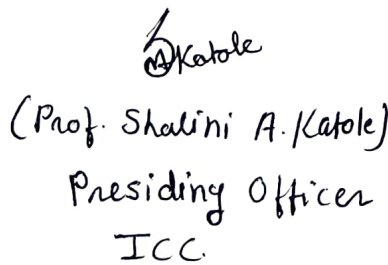 Katole
(Prof. Shalini A. Katole)
Presiding Officer
ICC.